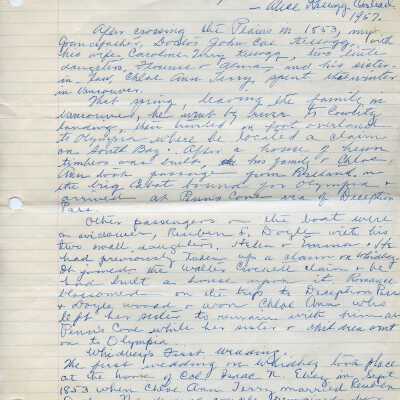 — Alice Kellogg
1957.
After crossing the Plains in 1853, my
Grandfather, Doctor John Coe Kellogg, with
his wife Caroline Terry Kellogg, two little
daughters, Florence & and his sister-
in-law, Chloe Ann Terry spent the winter
in Vancouver.
That spring, leaving the family in
Vancouver, he went by river to Cowlitz
Landing, then hiked on foot overland
to Olympia where he located a claim
on South Bay. After a house of hewn
timbers was built, his family & Chloe
Ann took passage from Portland on
the brig Cabot bound for Olympia &
arrived at Penn's Cove via of Deception
Pass.
Other passengers on the boat were
a widower, Reuben S. Doyle with his
two small daughters, Helen & Emma. He
had previously taken up a claim on Whidbey
It joined the Walter Crockett claim & he
had built a house upon it. Romance
blossomed on the trip to Deception Pass
& Doyle wooed & won Chloe Ann who
left her sister to remain with him at
Penn's Cove while her sister & children went
on to Olympia
Whidbey's First Wedding.
The first wedding on Whidbey took place
at the home of Col. Isaac N. Ebey in Sept
1853 when Chloe Ann Terry married Reuben